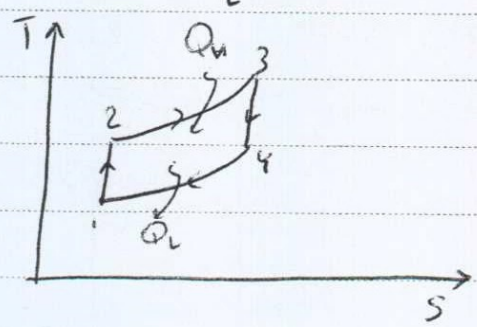 T
Q_H
3
2
4
1
Q_L
S